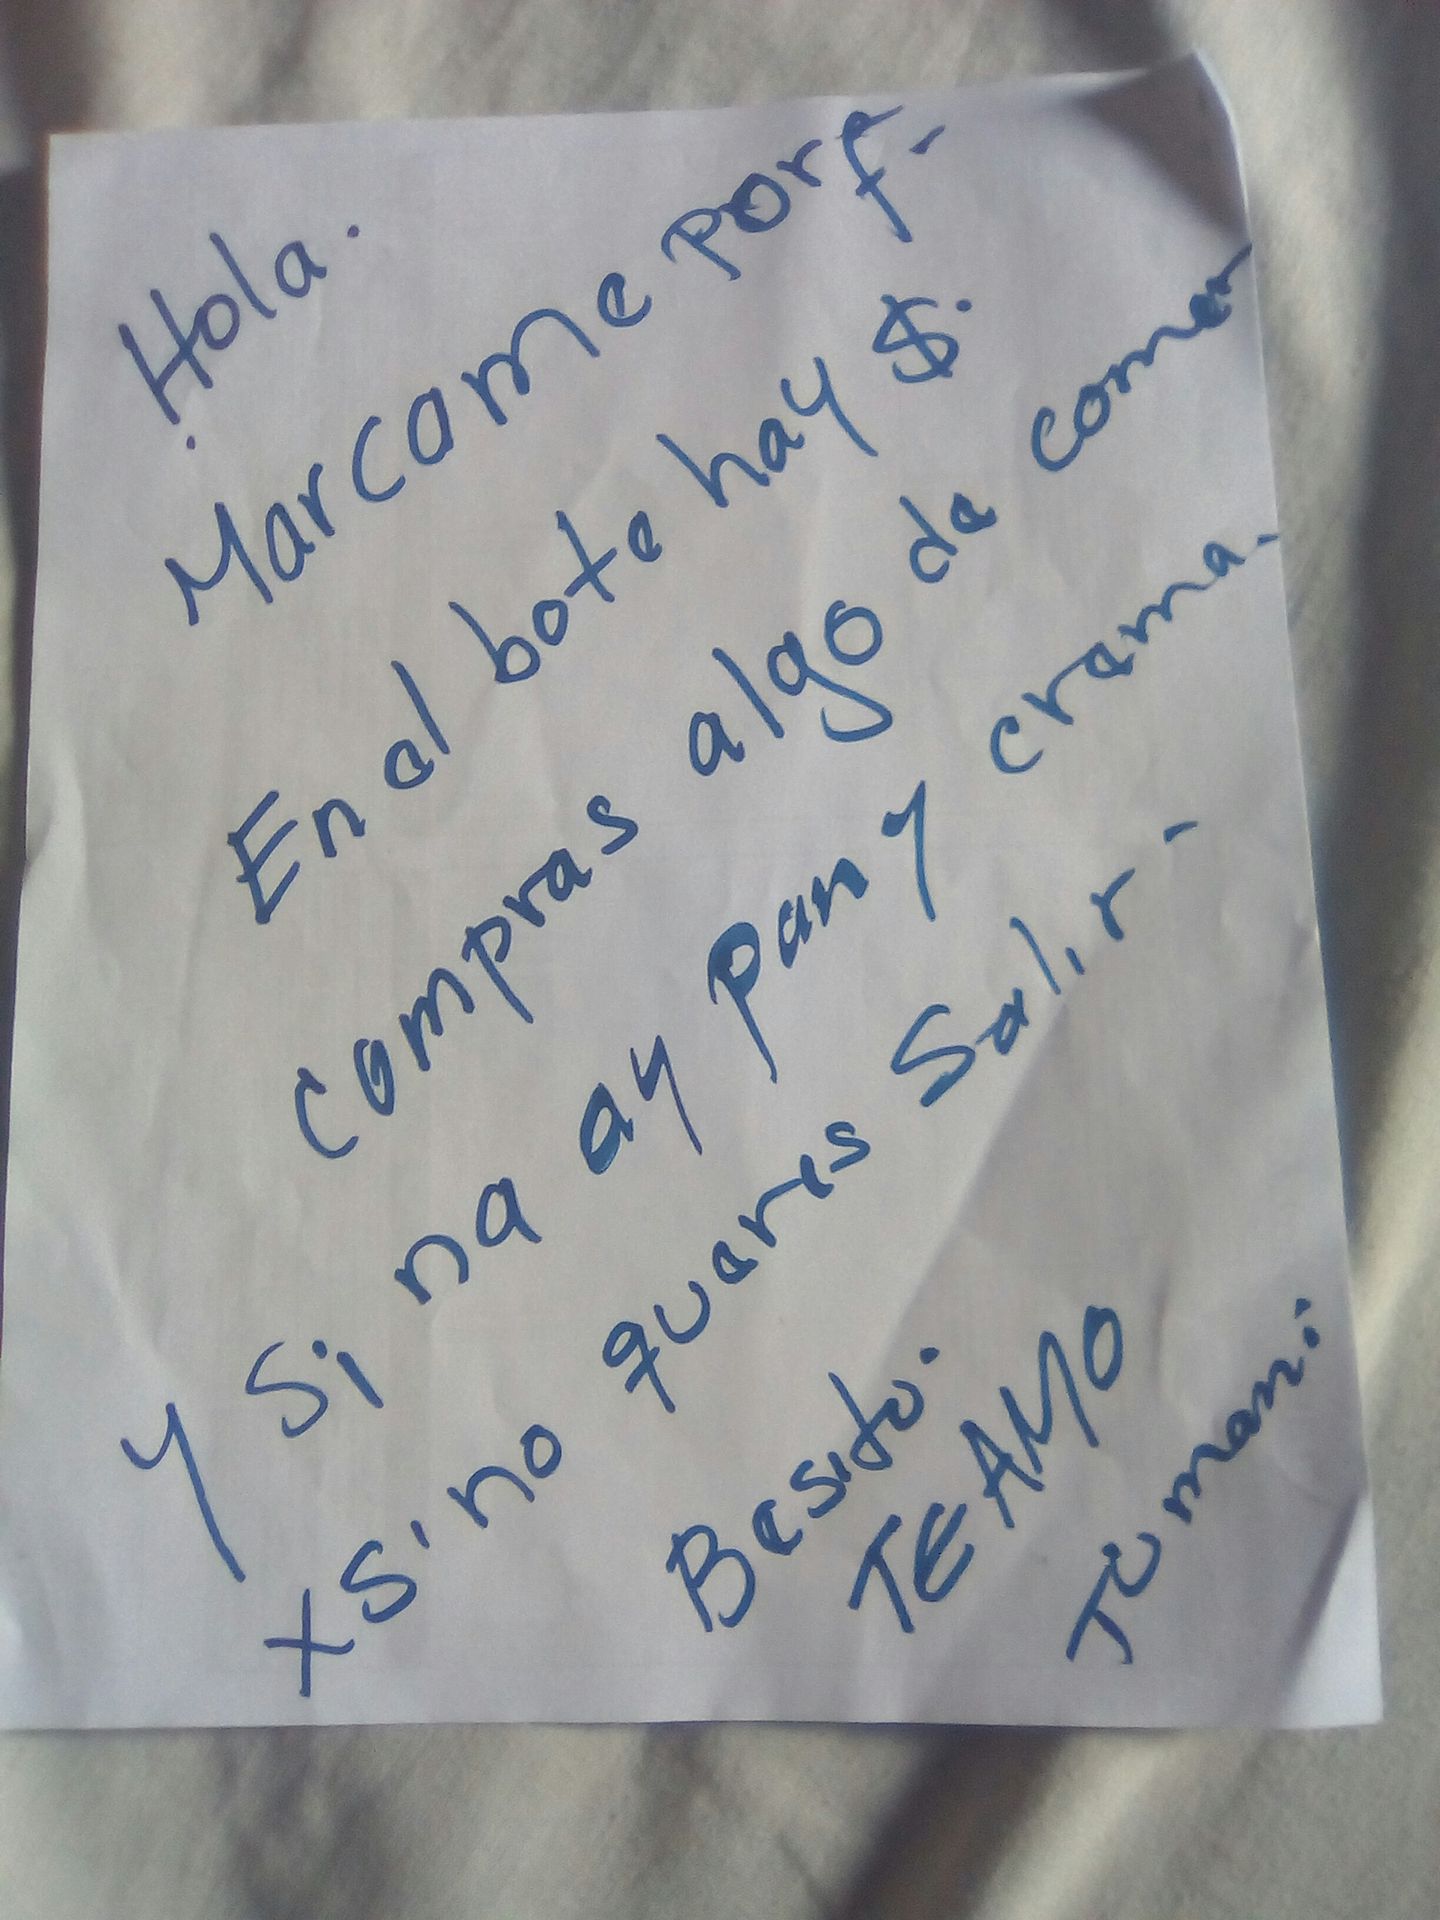 ¡Hola.
Marcame porf.
En el bote hay $.
compras algo de comer
y si na ay pan y crema.
x si no queres salir.
Besito.
TE AMO
TU mami